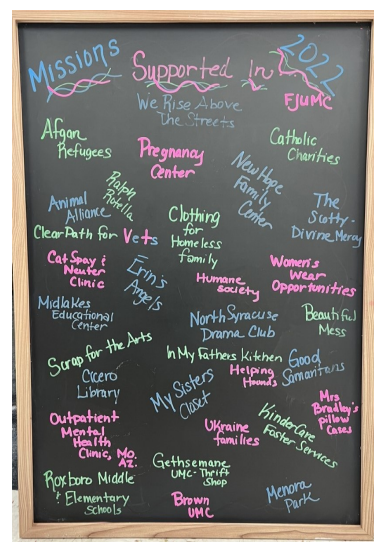 Missions Supported In 2022
FJUMC
We Rise Above
The Streets
Afgan
Refugees
Pregnancy
Center
Catholic
Charities
Ralph
Rotella
New Hope
Family
Center
Animal
Alliance
Clothing
for
Homeless
family
The
Scotty-
Divine Mercy
Clear Path for Vets
Cat Spay &
Neuter
Clinic
Erin's
Angels
Humane
Society
Women's
Wear
Opportunities
Midlakes
Educational
Center
North Syracuse
Drama Club
Beautiful
Mess
Scrap for the Arts
In My Fathers Kitchen
Good
Samaritans
Cicero
Library
My Sisters
Closet
Helping
Hounds
Mrs
Bradley's
pillow
Cases
Outpatient
Mental
Health
Clinic, Mo.
Az.
Ukraine
families
KinderCare
Foster Services
Gethsemane
UMC-Thrift
Shop
Roxboro Middle
& Elementary
Schools
Brown
UMC
Menora
Park